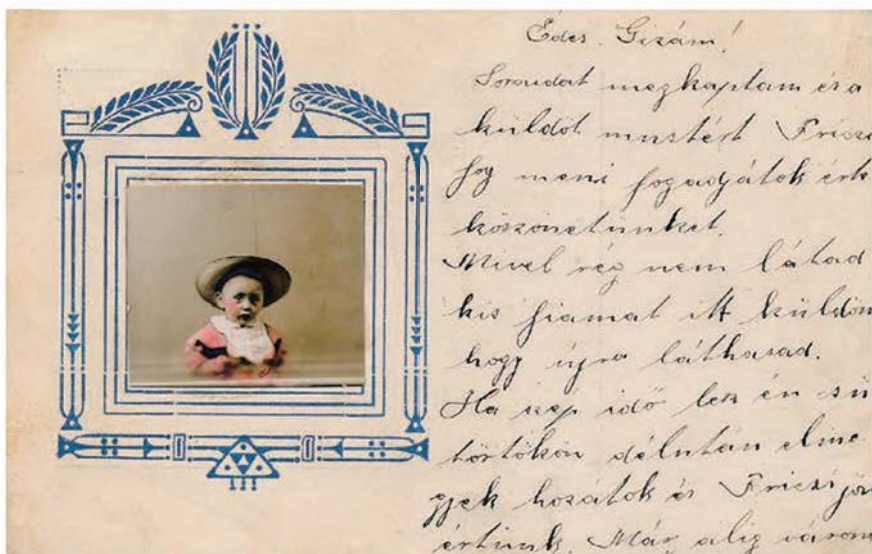 Édes. Gizám!
Soraidat megkaptam és a
küldöt mustért Friczi
fog meni fogadjátok érte
köszönetünket.
Mivel rég nem látad
kis fiamat itt küldöm
hogy újra láthasad.
Ha szép idő lesz én csü
törtökön délután elme
gyek hozátok és Friczi jön
értünk. Már alig várom